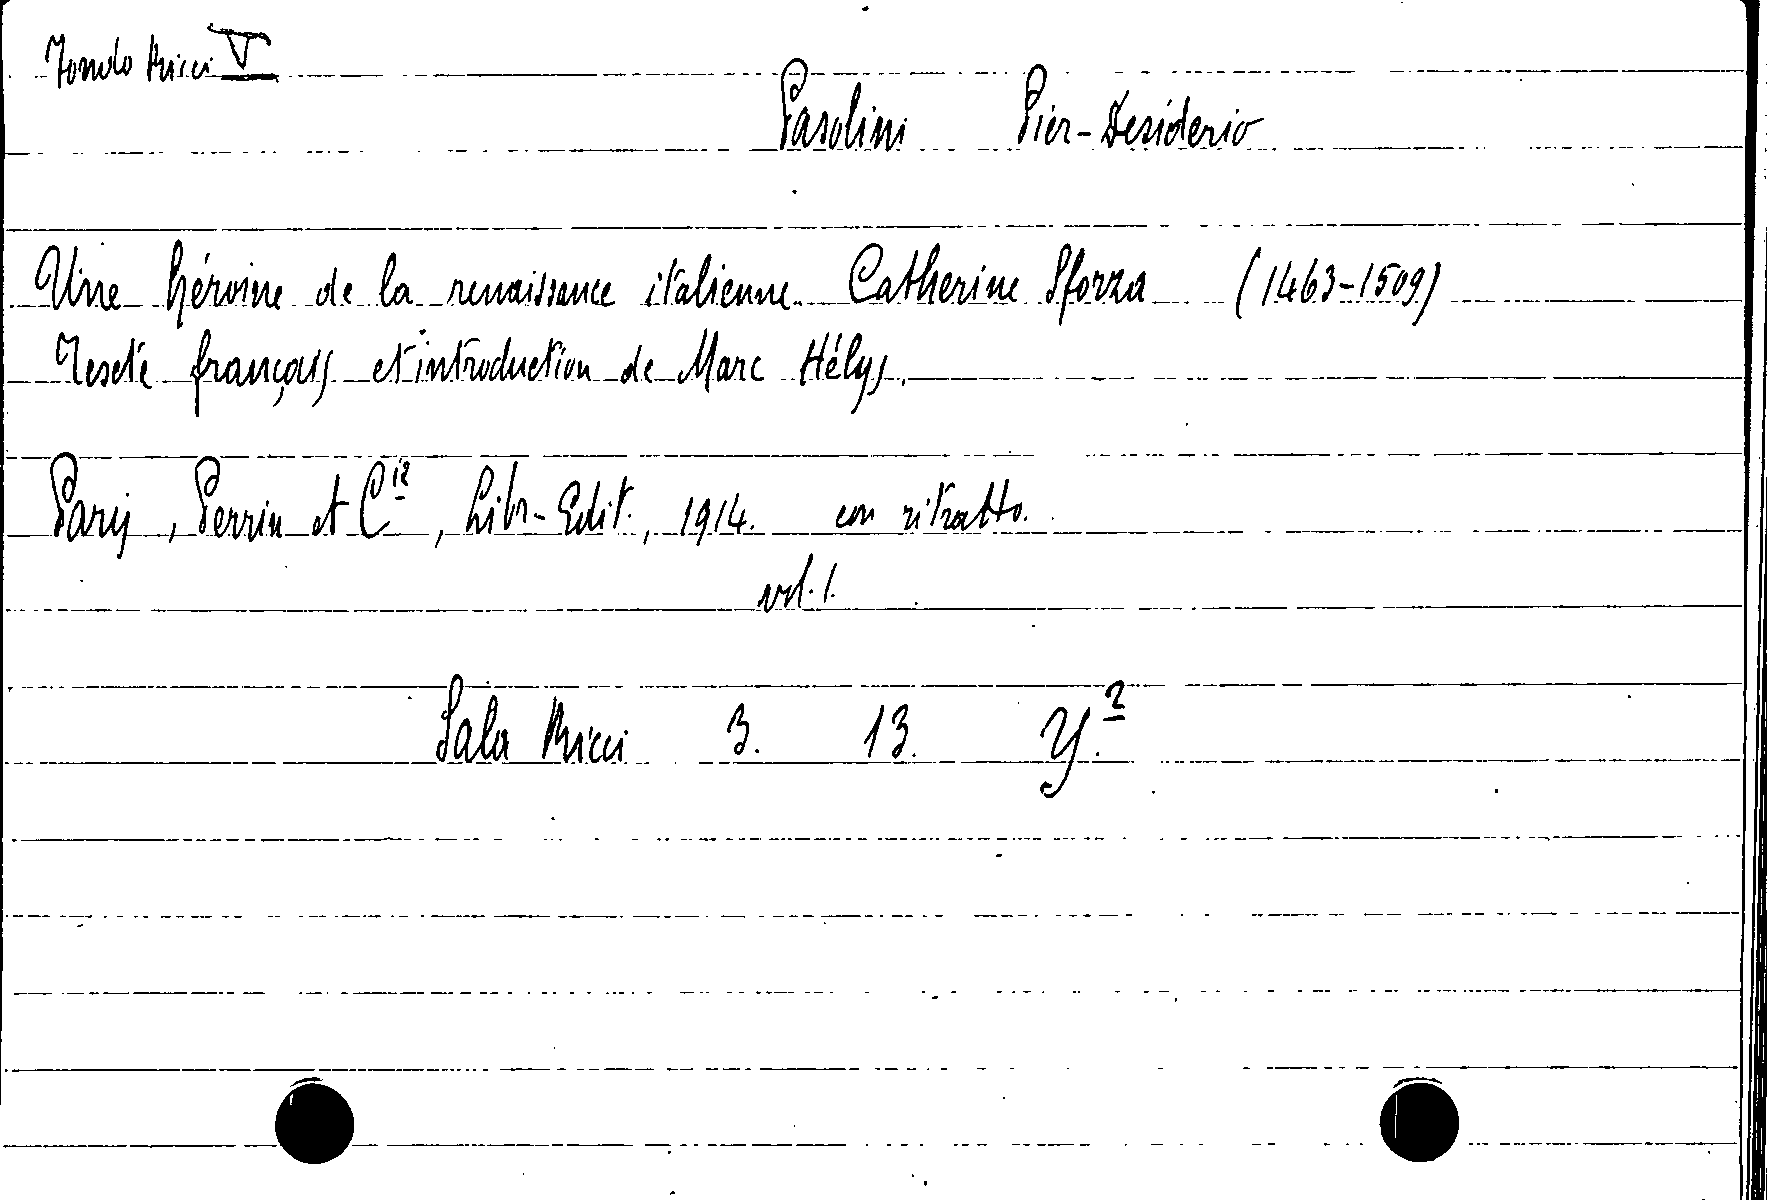 Fondo Ricci V
Pasolini Pier-Desiderio
Une héroine de la renaissance italienne. Catherine Sforza (1463-1509)
Texte français et introduction de Marc Hélys.
Paris, Perrin et Cie, Libr-Edit., 1914. con ritratto.
vol. 1.
Sala Ricci 3. 13. Y.2